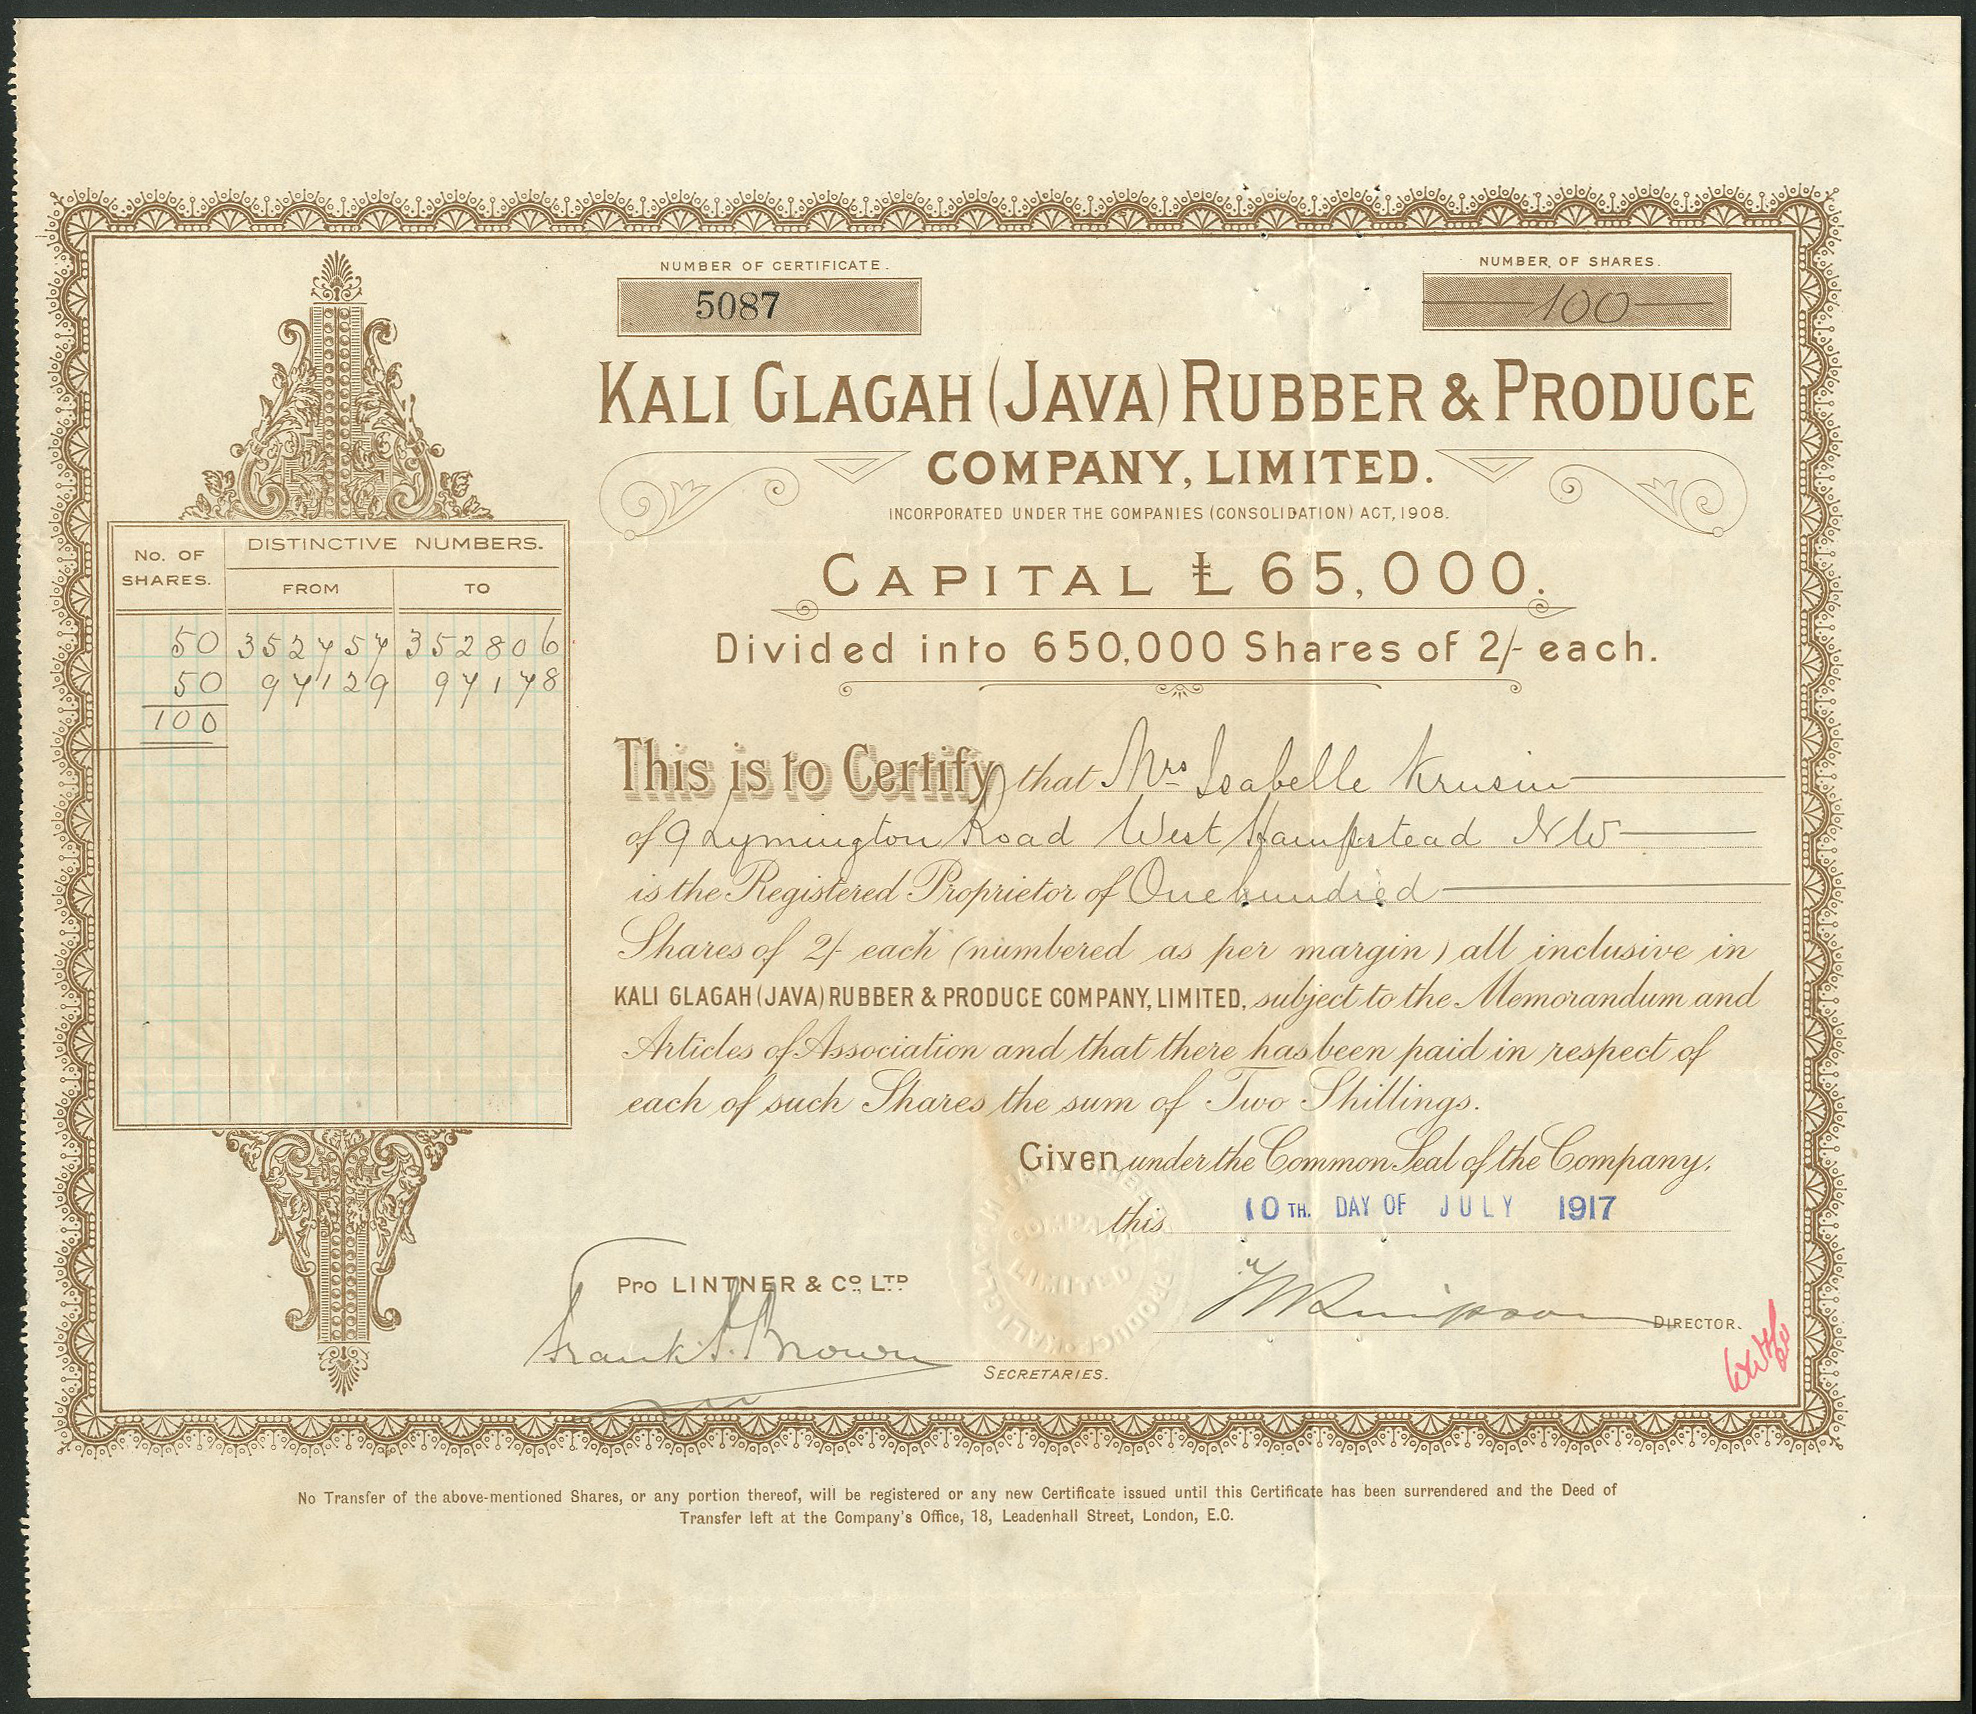 NUMBER OF CERTIFICATE.
5087
NUMBER OF SHARES.
100
KALI GLAGAH (JAVA) RUBBER & PRODUCE
COMPANY, LIMITED.
INCORPORATED UNDER THE COMPANIES (CONSOLIDATION) ACT, 1908.
CAPITAL £65,000.
Divided into 650,000 Shares of 2/- each.
No. OF SHARES.
DISTINCTIVE NUMBERS.
FROM TO
50 352757 352806
50 97129 97178
100
This is to Certify that Mrs Isabelle Krusin
of 9 Lymington Road West Hampstead NW
is the Registered Proprietor of One hundred
Shares of 2/- each (numbered as per margin) all inclusive in
KALI GLAGAH (JAVA) RUBBER & PRODUCE COMPANY, LIMITED, subject to the Memorandum and
Articles of Association and that there has been paid in respect of
each of such Shares the sum of Two Shillings.
Given under the Common Seal of the Company,
this 10TH. DAY OF JULY 1917
Pro LINTNER & Co. LTD
Frank S. Brown
SECRETARIES.
DIRECTOR.
COMPANY
LIMITED
No Transfer of the above-mentioned Shares, or any portion thereof, will be registered or any new Certificate issued until this Certificate has been surrendered and the Deed of
Transfer left at the Company's Office, 18, Leadenhall Street, London, E.C.